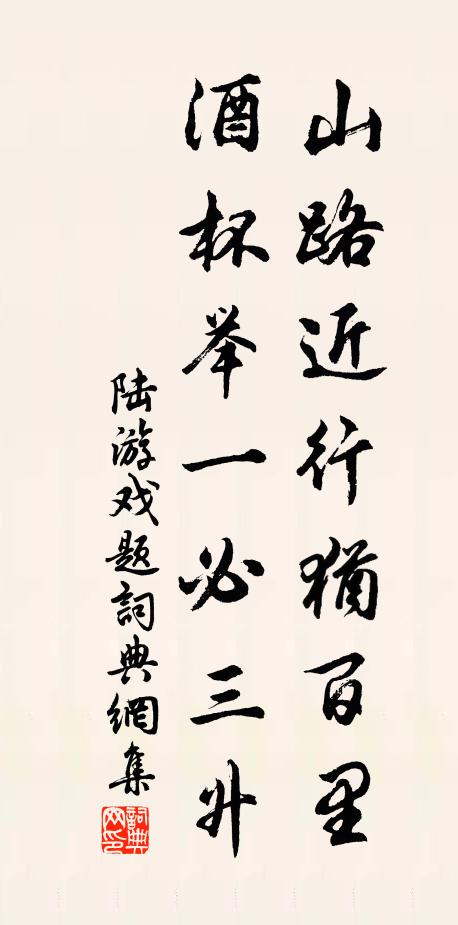 山路近行犹百里
酒杯举一必三升
陆游戏题詞典網集
詞典
网印